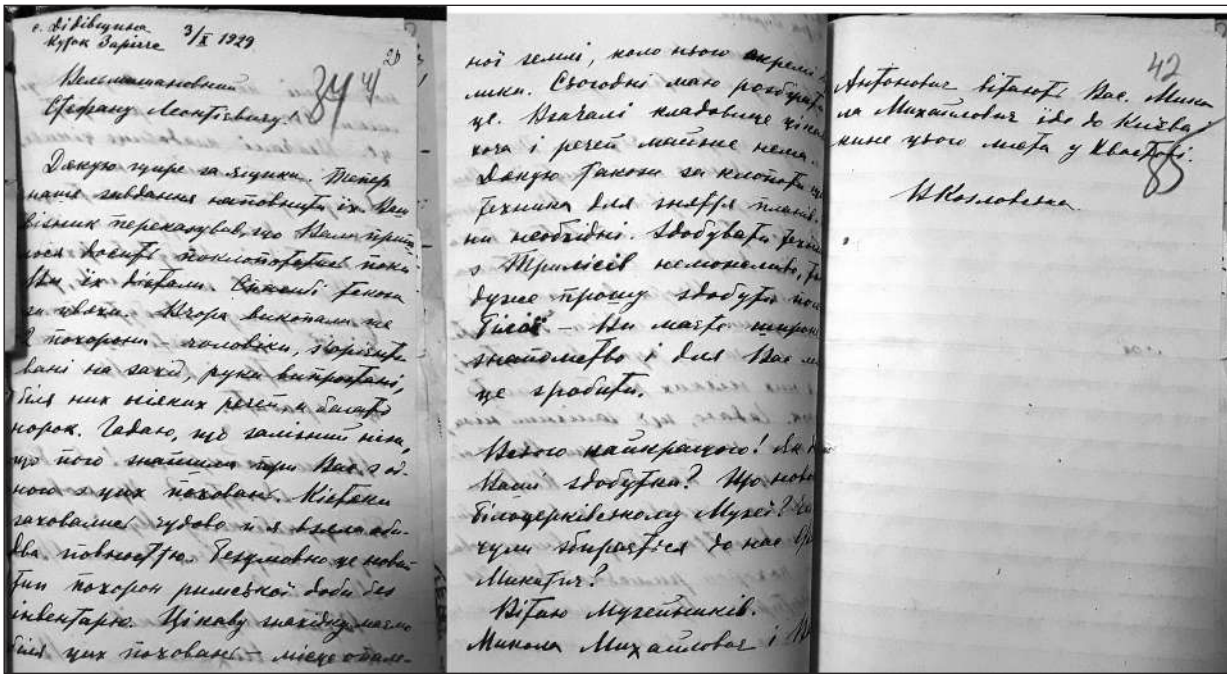 с. Дідівщина
Куток Заріччя 3/X 1929
Вельмишановний
Стефану Леонтієвичу.
Дякую щиро за ящики. Тепер
наше завдання наповнити їх. Ваш
візник переказував, що Вам прий-
лося досить поклопотатись поки
Ви їх дістали. Спасибі також
за цвяхи. Вчора викопали ще
2 похорони – чоловіки, зорієнто
вані на захід, руки випростані,
біля них ніяких речей, й багато
норок. Гадаю, що залізний ніж,
що його знайшли при Вас з од-
ного з цих поховань. Кістяки
заховалися чудово й я взяла оби-
два повністю. Безумовно це новий
тип похорон римської доби без
інвентарю. Цікаву знахідку маємо
біля цих поховань – місце опале-
ної землі, коло нього окремі
Сьогодні маю розбирати
це. Взагалі кладовище ціка
хоча і речей майже нема.
Дякую також за клопоти що
техника для зняття планів.
ни необхідні. Здобувати техні
з Трилісів неможливо,
дуже прошу здобути
Білої – Ви маєте широк
знайомство і для Вас
це зробити.
Всього найкращого! Як
Ваши здобутки? Що нов
Білоцерківському Музеї?
чули збирається до нас
Микитич?
Вітаю Музейників.
Микола Михайлович і
42
Антонович вітають Вас. Мико
ла Михайлович їде до Київа і
кине цього листа у Хвастові.
В Козловська